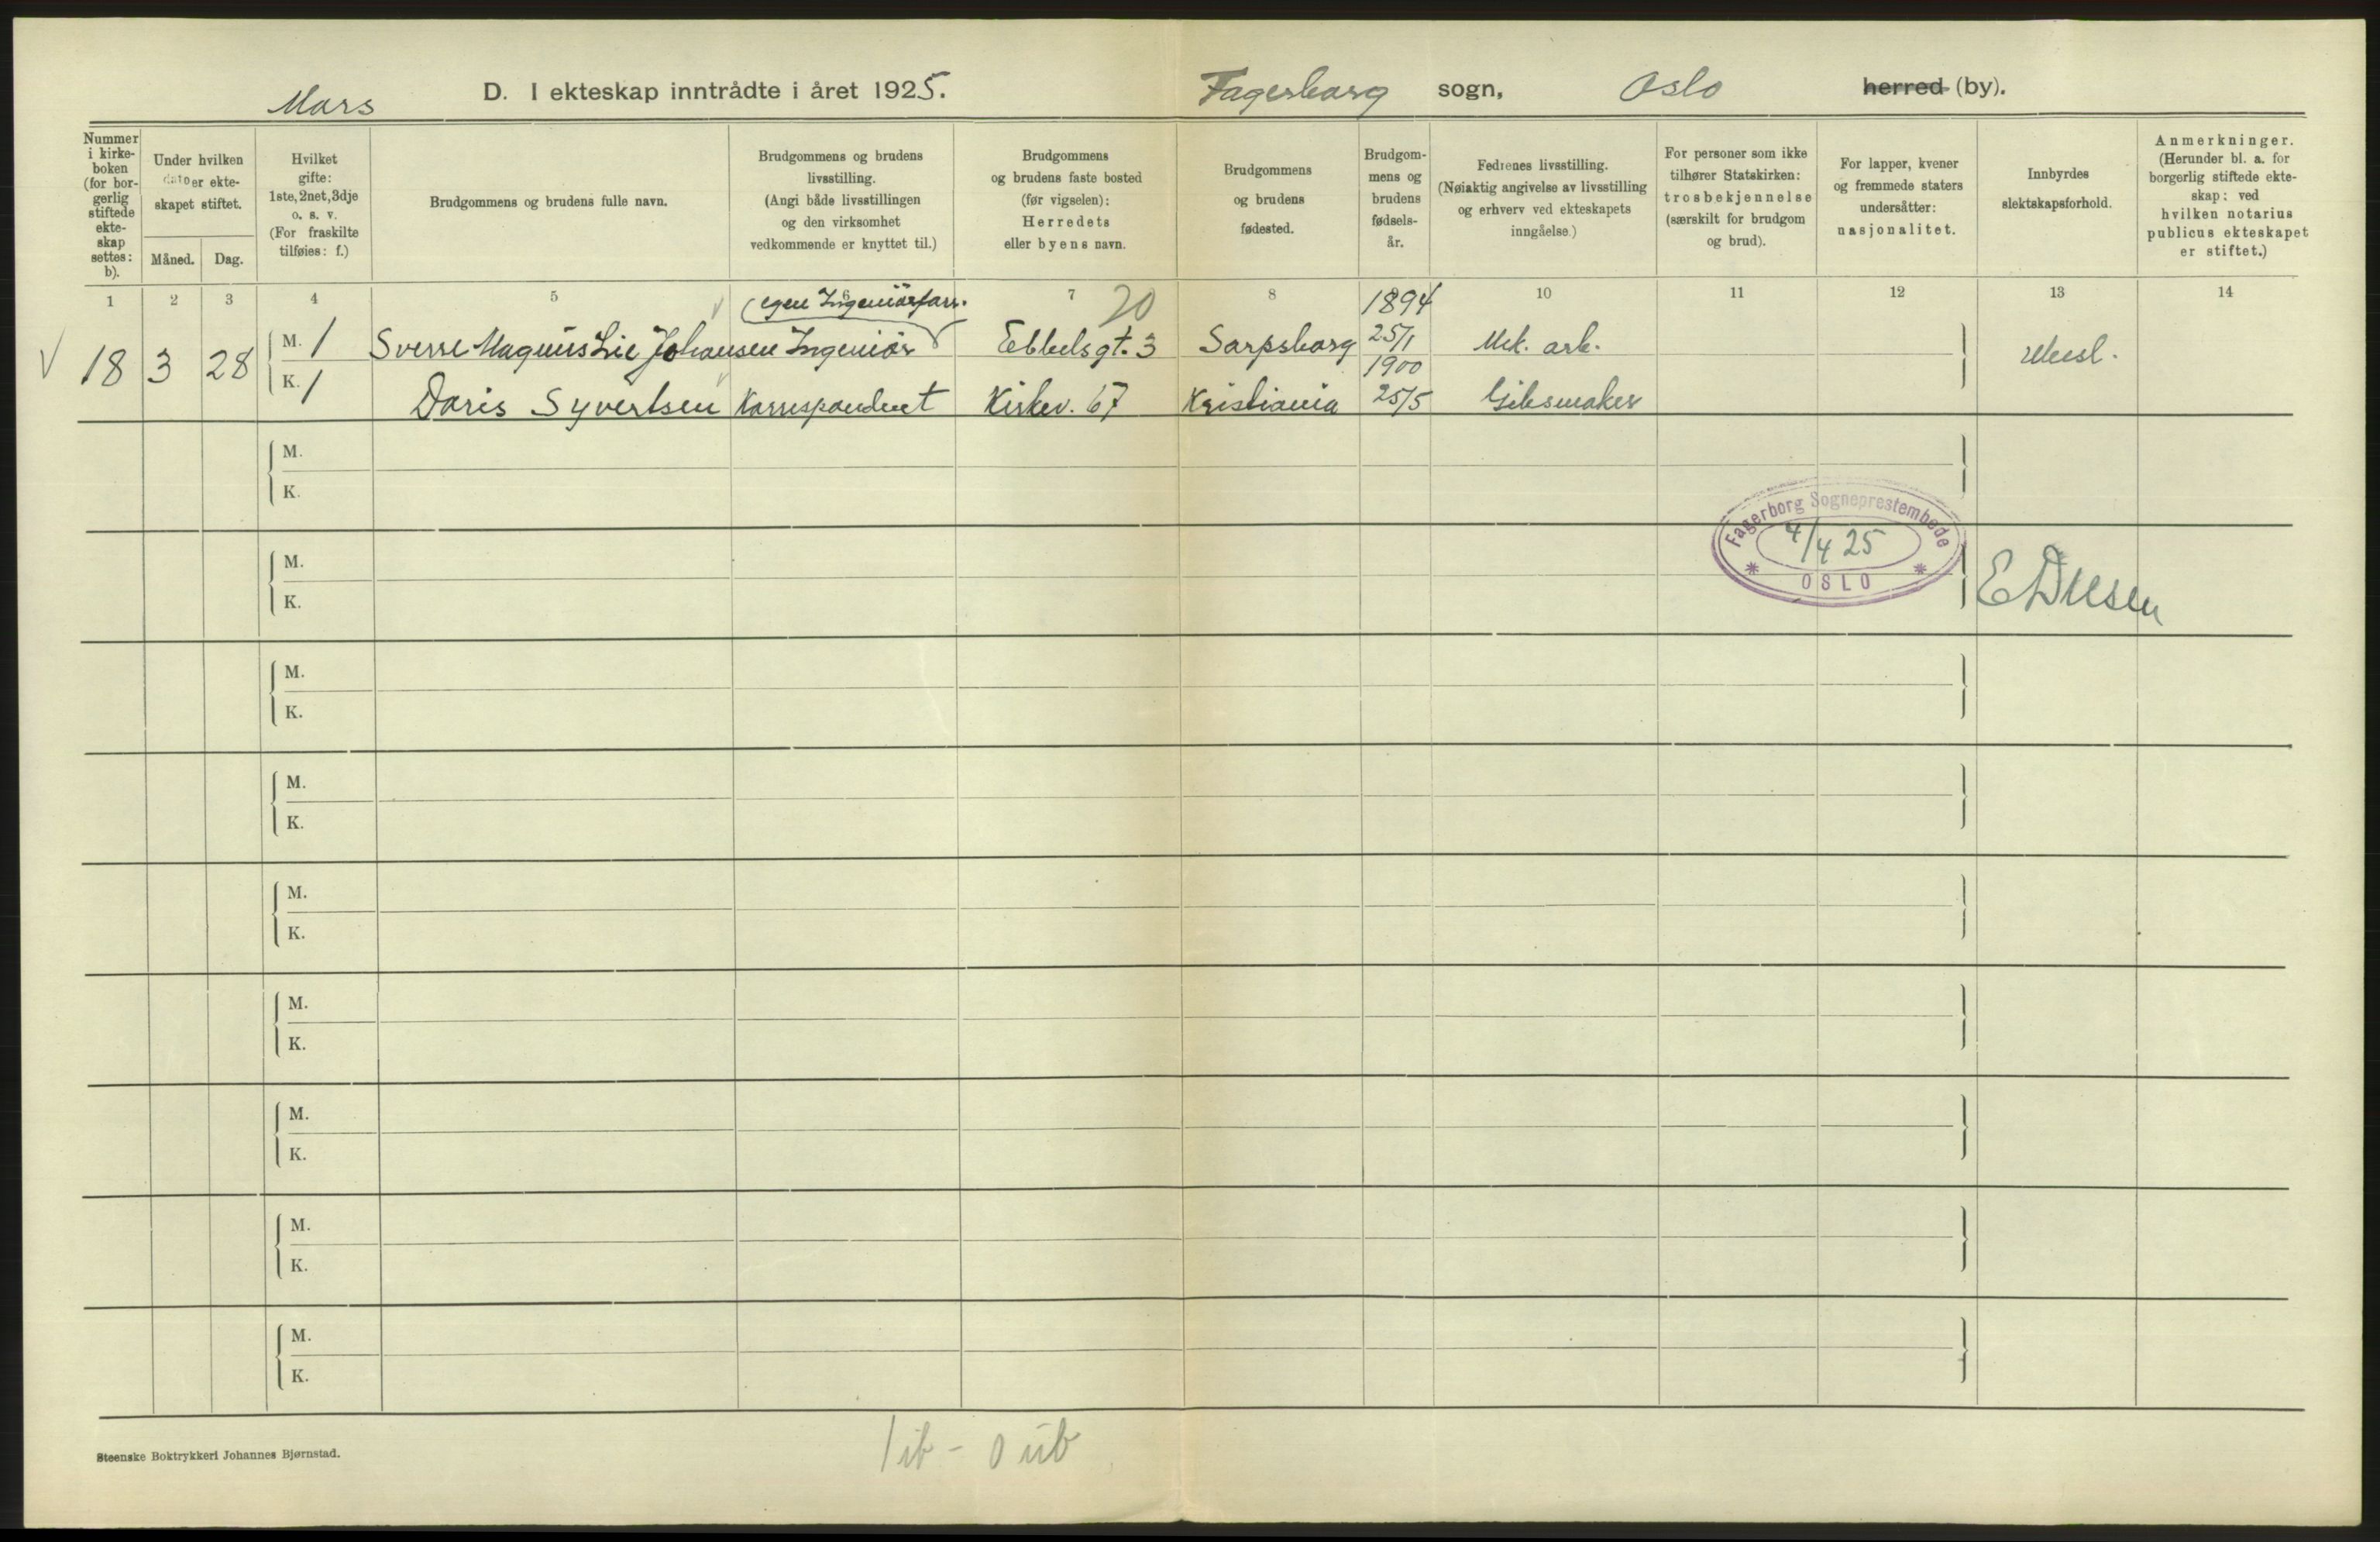 Mars
D. I ekteskap inntrådte i året 1925.
Fagerborg sogn, Oslo herred (by).
Nummer i kirke-boken (for bor-gerlig stiftede ekte-skap settes: b).
Under hvilken dato er ekte-skapet stiftet.
Måned. Dag.
Hvilket gifte: 1ste, 2net, 3dje o. s. v. (For fraskilte tilføies: f.)
Brudgommens og brudens fulle navn.
Brudgommens og brudens livsstilling. (Angi både livsstillingen og den virksomhet vedkommende er knyttet til.)
Brudgommens og brudens faste bosted (før vigselen): Herredets eller byens navn.
Brudgommens og brudens fødested.
Brudgom-mens og brudens fødsels-år.
Fedrenes livsstilling. (Nøiaktig angivelse av livsstilling og erhverv ved ekteskapets inngåelse.)
For personer som ikke tilhører Statskirken: trosbekjennelse (særskilt for brudgom og brud).
For lapper, kvener og fremmede staters undersåtter: nasjonalitet.
Innbyrdes slektskapsforhold.
Anmerkninger. (Herunder bl. a. for borgerlig stiftede ekte-skap: ved hvilken notarius publicus ekteskapet er stiftet.)
1 2 3 4 5 6 7 8 10 11 12 13 14
(egen Ingeniørforr. 20 1894
18 3 28 M. 1 Sverre Magnus Lie Johansen Ingeniør Ebbelsgt. 3 Sarpsborg 25/1 Mek. arb. Ubesl.
1900
K. 1 Doris Syvertsen Korrespondent Kirkev. 67 Kristiania 25/5 Gibsmaker
M.
K.
Fagerborg Sogneprestembede
4/4 25
OSLO
M.
K.
M.
K.
M.
K.
M.
K.
M.
K.
M.
K.
M.
K.
M.
K.
1 ib - 0 ub
Steenske Boktrykkeri Johannes Bjørnstad.